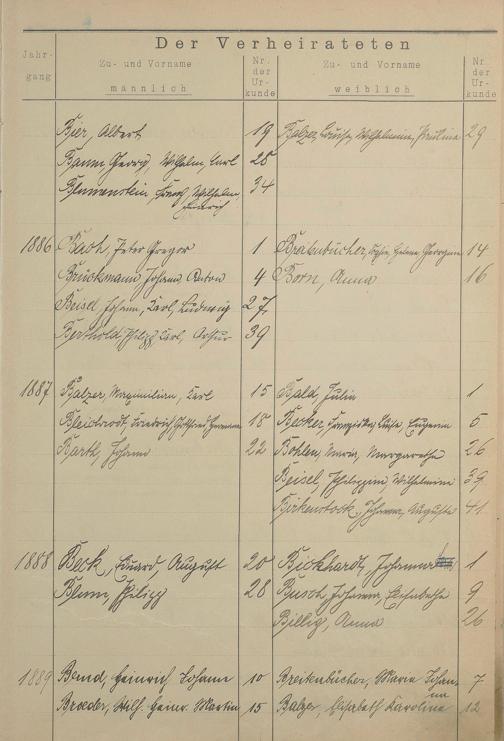 Der Verheirateten
Jahr-
gang
Zu- und Vorname
männlich
Nr.
der
Ur-
kunde
Zu- und Vorname
weiblich
Nr.
der
Ur-
kunde
Bier, Albert 19 Balzer, Luise, Wilhelmine, Pauline 29
Baum Georg, Wilhelm, Carl 28
Blumenstein, Wilhelm, 34
1886 Peter Gregor 1 Breitenbücher, Helene 14
Brückmann Johann Anton 4 Born, Anna 16
Beisel, Johann, Karl, Ludwig 27
Berthold, Philipp, Karl, Artur 39
1887 Balzer, Maximilian, Karl 15 Bald, Julie 1
Friedrich, Gottfried, Hermann 18 Becker, Franziska, Luise, Eugenie 5
Barth, Johann 22 Böhlen, Maria, Margarethe 26
Beisel, Philippine, Wilhelmine 39
Birkenstock, Johanna, Auguste 41
1888 Beck, Eduard, August 20 Bickhardt, Johanna 1
Blum, Philipp 28 Busch, Johanna, 9
Billig, Anna 26
1889 Bernd, Heinrich Johann 10 Breitenbücher, Marie Johan- 7
na
Broeder, Wilh. Heinr. Martin 15 Balzer, Elisabeth Karoline 12